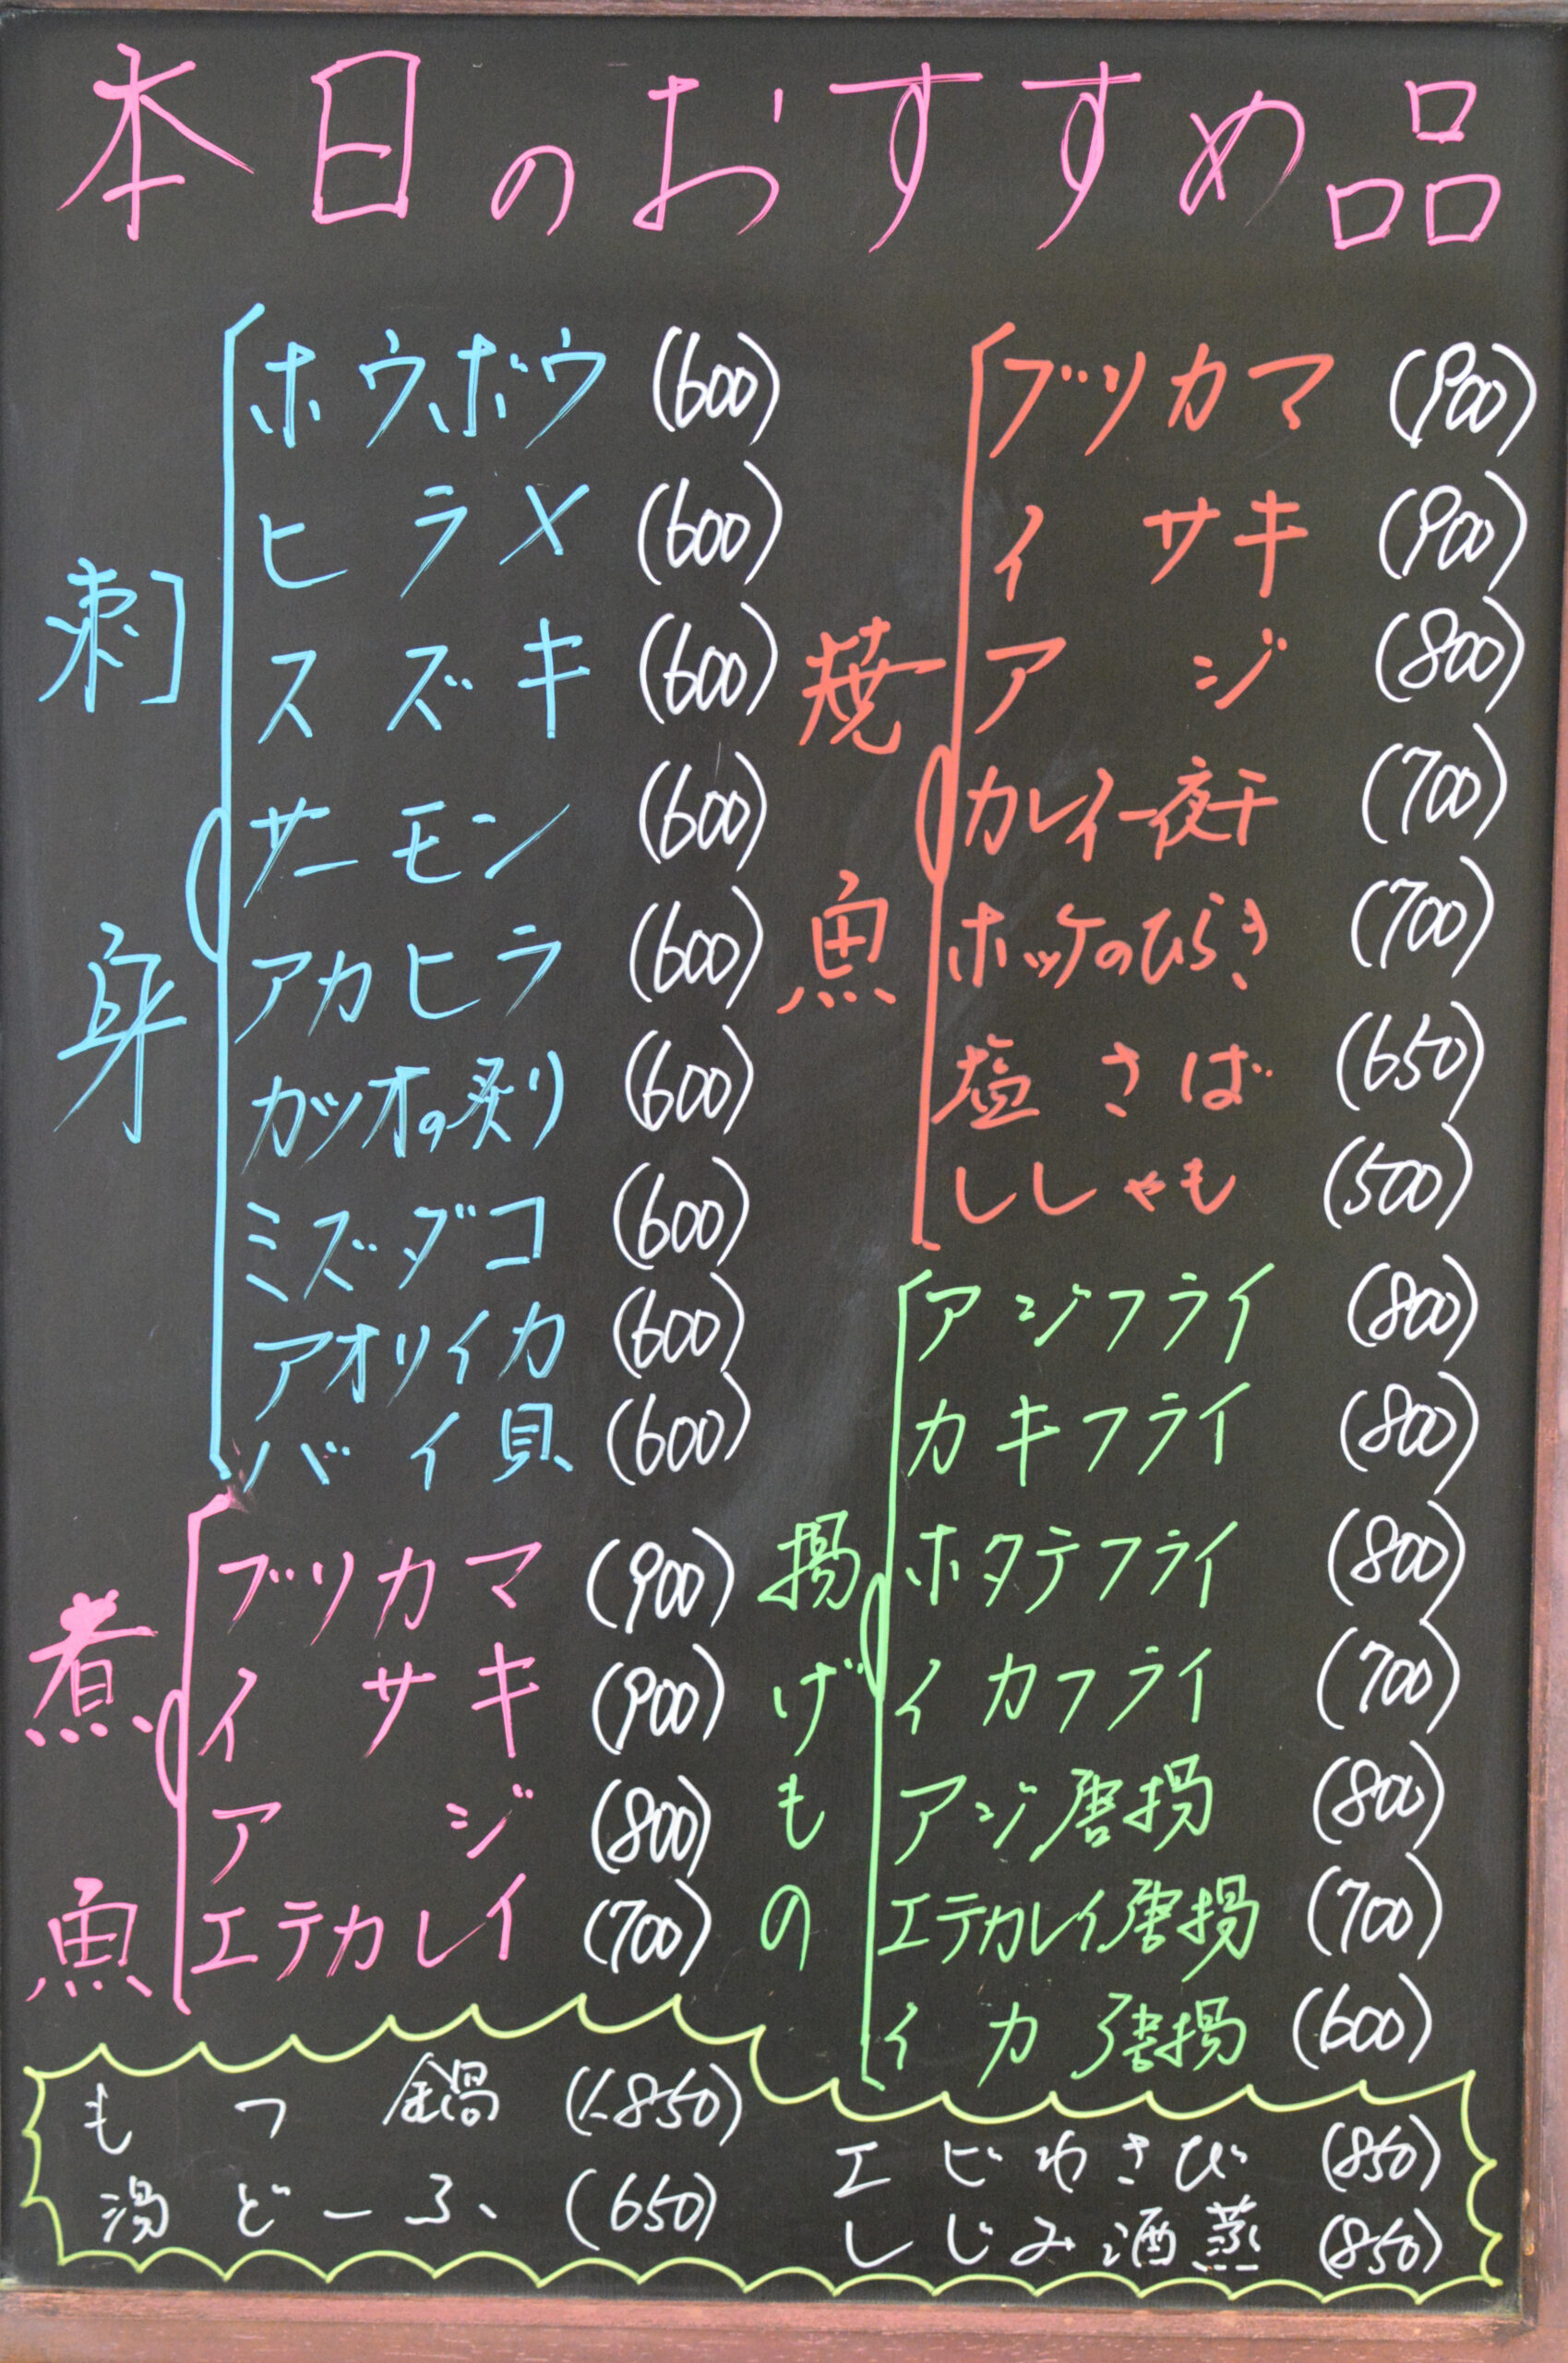 本日のおすすめ品
刺身
ホウボウ (600)
ヒラメ (600)
スズキ (600)
サーモン (600)
アカヒラ (600)
カツオの炙り (600)
ミズダコ (600)
アオリイカ (600)
バイ貝 (600)
煮魚
ブリカマ (900)
イサキ (900)
アジ (800)
エテカレイ (700)
焼魚
ブリカマ (900)
イサキ (900)
アジ (800)
カレイ一夜干 (700)
ホッケのひらき (700)
塩さば (650)
ししゃも (500)
揚げもの
アジフライ (800)
カキフライ (800)
ホタテフライ (800)
イカフライ (700)
アジ唐揚 (800)
エテカレイ唐揚 (700)
イカ唐揚 (600)
もつ鍋
湯どーふ (650)
エビわさび (850)
しじみ酒蒸 (850)